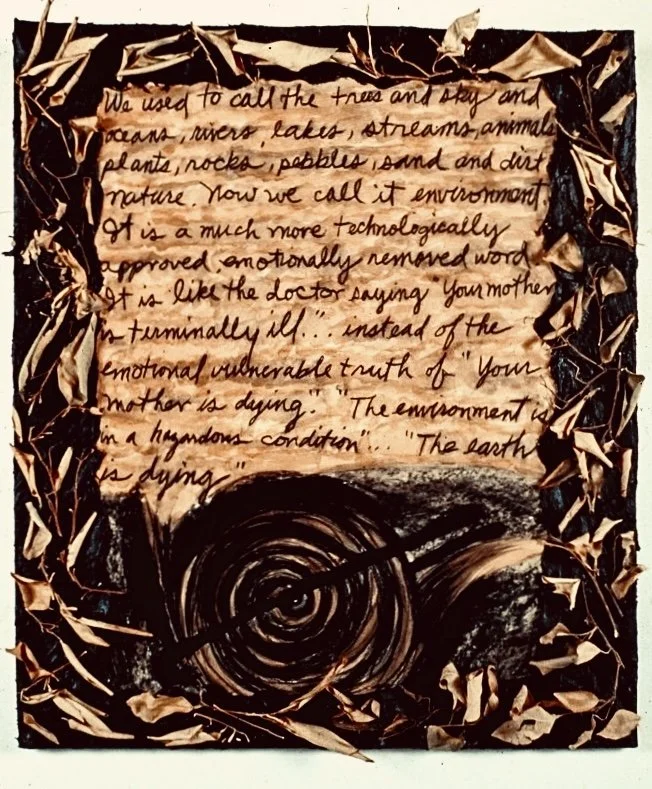 We used to call the trees and sky and
oceans, rivers, lakes, streams, animals
plants, rocks, pebbles, sand and dirt
nature. Now we call it environment.
It is a much more technologically
approved, emotionally removed word.
It is like the doctor saying "Your mother
is terminally ill."... instead of the
emotional vulnerable truth of "Your
mother is dying." "The environment is
in a hazardous condition"... "The earth
is dying"